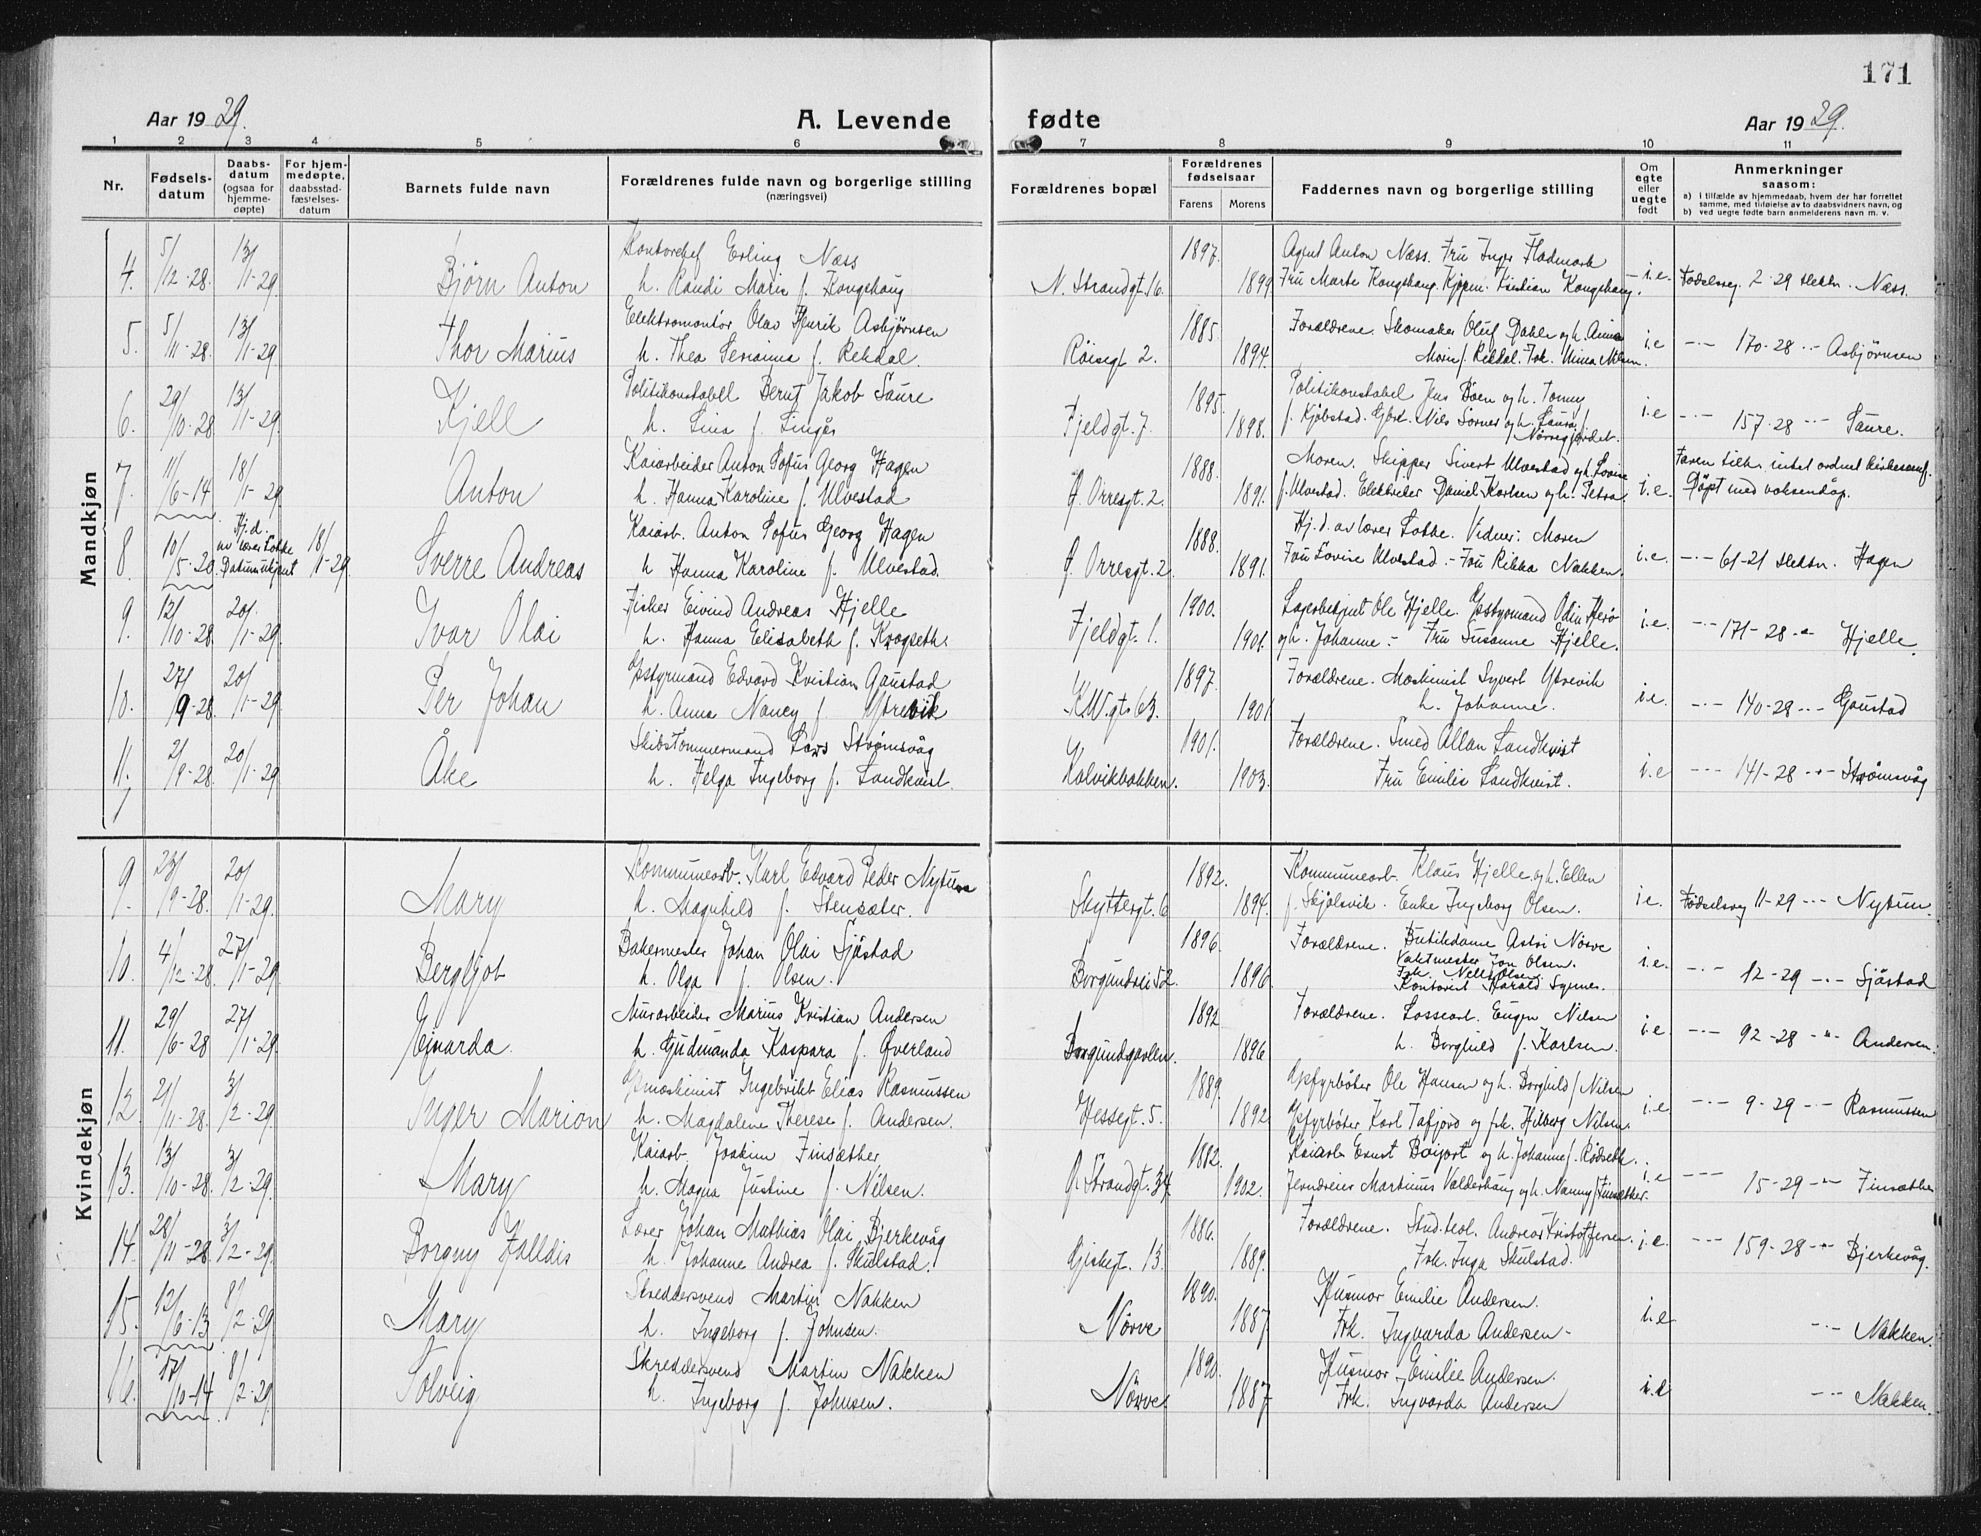 171
Aar 1929.
A. Levende
fødte
Aar 1929.
1 2 3 4 5 6 7 8 9 10 11
Nr.
Fødsels-
datum
Daabs-
datum
(ogsaa for
hjemme-
døpte)
For hjem-
medøpte,
daabsstad-
fæstelses-
datum
Barnets fulde navn
Forældrenes fulde navn og borgerlige stilling
(næringsvei)
Forældrenes bopæl
Forældrenes
fødselsaar
Farens Morens
Faddernes navn og borgerlige stilling
Om
egte
eller
uegte
født
Anmerkninger
saasom:
a) i tilfælde av hjemmedaab, hvem der har forrettet
samme, med tilføielse av to daabsvidners navn, og
b) ved uegte fødte barn anmelderens navn m. v.
Mandkjøn
4. 5/12-28. 13/1-29 Bjørn Anton
Kontorchef Erling Næss
h. Randi Marie f. Kongshaug
N. Strandgt. 16. 1897. 1899
Agent Anton Næss. Fru Inger Flademark
Fru Marte Kongshaug. Kjøpm. Kristian Kongshaug.
i.e. Fødselsreg. 2-29 Næss.
5. 5/11-28. 13/1-29 Thor Marius
Elektromontør Olav Henrik Asbjørnsen
h. Thea Serianna f. Rekdal.
Røisegt 2. 1885. 1894.
Forældrene. Skomaker Oluf Dahle og h. Anna
Marie f. Rekdal. Frk. Minna Nilsen.
i.e -"- 170-28 -"- Asbjørnsen
6. 29/10-28 13/1-29. Kjell
Politikonstabel Bernt Jakob Saure
h. Lina f. Lingås
Fjeldgt. 7. 1895. 1898.
Politikonstabel Jens Böen og h. Tonny
f. Kjøbstad. Nils Sørnes og h. Laura f.
Nørregjerdet.
i.e -"- 157-28 -"- Saure.
7. 11/6-14 18/1-29. Anton
Kaiarbeider Anton Sofus Georg Hagen
h. Hanna Karoline f. Ulvestad
Ø. Orresgt. 2. 1888. 1891.
Moren. Skipper Sivert Ulvestad og h. Lovise
f. Ulvestad. Daniel Karlsen og h. Petra.
i.e. Faren tilh. intet ordnet kirkesamf.
Døpt med voksendåp.
8. 10/5-20 Hj.d.
av lærer Lothe
Datum ukjent 18/1-29. Sverre Andreas
Kaiarb. Anton Sofus Georg Hagen
h Hanna Karoline f. Ulvestad.
Ø. Orresgt. 2. 1888. 1891.
Hj. d. av lærer Lothe. Vidner: Moren
Fru Lovise Ulvestad. - Fru Rikka Nakken.
i.e. -"- 61-21 Hagen
9. 12/10-28. 20/1-29. Ivar Olai
Fisker Eivind Andreas Hjelle
h. Hanna Elisabeth f. Kvogseth.
Fjeldgt. 1. 1900. 1901.
Lagerbetjent Ole Hjelle. Odin Herø
og h. Johanne - Fru Susanne Hjelle.
i.e. -"- 171-28 -"- Hjelle.
10. 27/9-28. 20/1-29. Per Johan
Edvard Kristian Gaustad
h. Anna Nancy f. Ytrevik
K.W.gt. 63. 1897. 1901
Forældrene. Maskinist Syvert Ytrevik
h. Johanne.
i.e. -"- 140-28 -"- Gaustad
11. 2/9-28. 20/1-29. Åke
Skibstømmermand Lars Strømsvåg
h. Helga Ingeborg f. Landkvist.
Kalvikbakken. 1901. 1903.
Forældrene. Smed Allan Landkvist
Fru Emilie Landkvist.
i.e -"- 141-28 -"- Strømsvåg
Kvindekjøn
9. 23/9-28. 20/1-29. Mary
Kommunearb. Karl Edvard Peder Nytun
h. Magnhild f. Stensæter.
Skyttergt. 6 1892. 1894.
Kommunearb. Klaus Hjelle og h. Ellen
f. Skjølsvik. Enke Ingeborg Olsen.
i.e. Fødselsreg 11-29 -"- Nytun.
10. 4/12-28. 27/1-29. Bergljot
Bakermester Johan Olai Sjåstad
h. Olga f. Olsen.
Borgundvei 52 1896. 1896.
Forældrene. Butikdame Astri Nörve
Vaktmester Jon Olsen.
Frk. Nelly Olsen.
Kontorist Harald Synnes.
i.e. -"- 12-29 -"- Sjåstad
11. 29/6-28 27/1-29. Ejvarda.
Murarbeider Marius Kristian Andersen
h. Gudmanda Kaspara f. Øverland
Borgundgavlen. 1892 1896
Forældrene. Lossearb. Eugen Nilsen
h. Borghild f. Karlsen.
i.e. -"- 92-28 -"- Andersen.
12. 2/11-28. 3/2-29. Inger Marion
Ingebrikt Elias Rasmussen
h. Magdalene Therese f. Andersen.
Hessegt. 5. 1889. 1892
Ole Hansen og h. Borghild f. Nilsen
Karl Tafjord og frk. Hilborg Nilsen.
i.e -"- 9-29 -"- Rasmussen
13. 13/10-28. 3/2-29. Mary
Kaiarb. Joakim Finsæther
h. Magna Justine f. Nilsen.
Ø. Strandgt. 34. 1882. 1902.
Kaiarb. Ernst og h. Johanne f. Rødseth.
Martinus Valderhaug og h. Nanny f. Finsæther.
i.e -"- 15-29 -"- Finsæther
14. 28/11-28. 3/2-29. Borgny Halldis
Lærer Johan Mathias Olai Bjerkevåg
h. Johanne Andrea f. Skulstad.
Giskegt. 13. 1886. 1889.
Forældrene. Stud. teol. Andreas Kristoffersen.
Frk. Inga Skulstad.
i.e. -"- 159-28 -"- Bjerkevåg.
15. 12/6-13 8/2-29 Mary
Skreddersvend Martin Nakken
h. Ingeborg f. Johnsen.
Nörve 1890. 1887.
Husmor Emilie Andersen.
Frk. Ingvarda Andersen -
i.e -"- Nakken.
16. 17/10-14 8/2-29. Solveig
Skreddersvend Martin Nakken
h. Ingeborg f. Johnsen.
Nörve 1890. 1887
Husmor Emilie Andersen.
Frk. Ingvarda Andersen
i.e -"- Nakken.